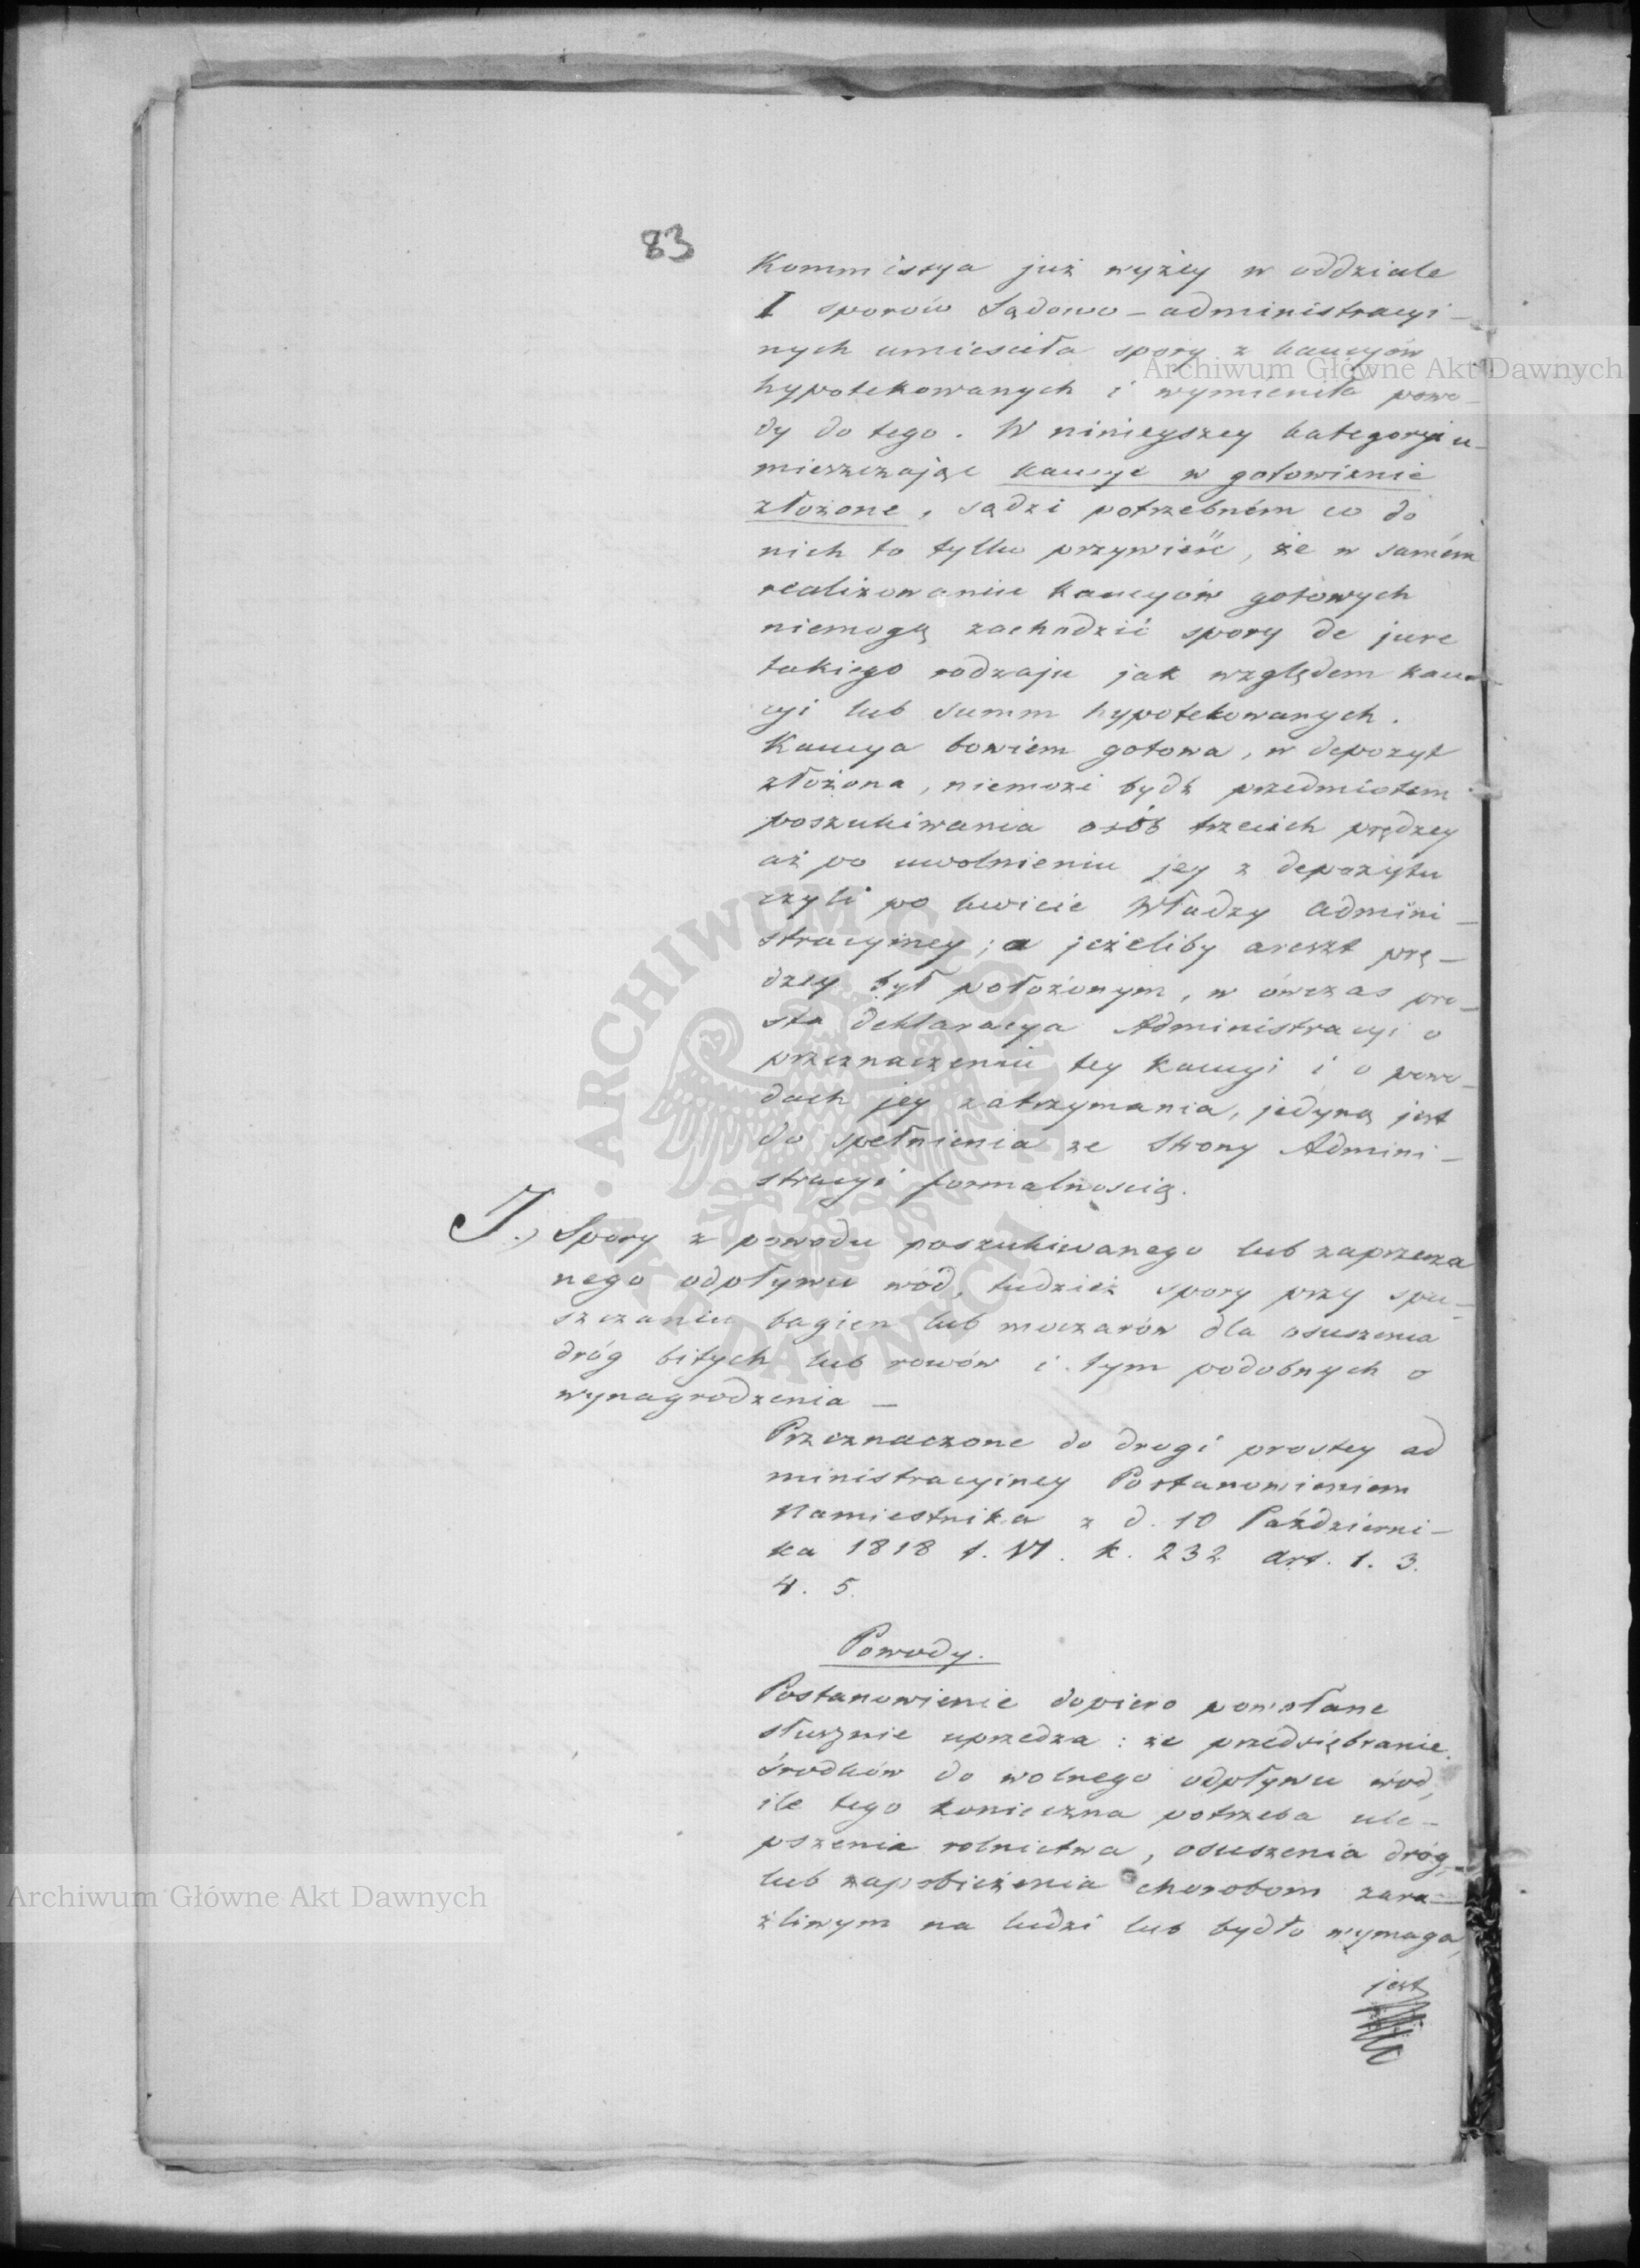 83
Kommissya już wyżey w oddziale
I sporów Sądowo-administracyi-
nych umieściła spory z kaucyów
hypotekowanych i wymieniła powo-
dy do tego. W ninieyszey kategoryi u-
mieszczając kaucye w gotowiznie
złożone, sądzi potrzebném co do
nich to tylko przywieść, że w samém
realizowaniu kaucyów gotowych
niemogą zachodzić spory de jure
takiego rodzaju jak względem kau-
cyi lub summ hypotekowanych.
Kaucya bowiem gotowa, w depozyt
złożona, niemoże bydź przedmiotem
poszukiwania osób trzecich prędzey
aż po uwolnieniu jey z depozytu
czyli po kwicie Władzy admini-
stracyiney; a jeżeliby areszt prę-
dzey był położonym, w ówczas pro-
sta deklaracya Administracyi o
przeznaczeniu tey kaucyi i o powo-
dach jey zatrzymania, jedyną jest
do spełnienia ze strony Admini-
stracyi formalnością.
J., Spory z powodu poszukiwanego lub zaprzecza
nego odpływu wód, tudzież spory przy spu-
szczaniu bagien lub moczarów dla osuszenia
dróg bitych lub rowów i tym podobnych o
wynagrodzenia —
Przeznaczone do drogi prostey ad
ministracyiney Postanowieniem
Namiestnika z d. 10 Październi-
ka 1818 t. VI. k. 232 art. 1. 3.
4. 5.
Powody.
Postanowienie dopiero powołane
słusznie uprzedza: że przedsiębranie
środków do wolnego odpływu wód,
ile tego konieczna potrzeba ule-
pszenia rolnictwa, osuszenia dróg,
lub zapobieżenia chorobom zara-
źliwym na ludzi lub bydło wymaga,
jest
Archiwum Główne Akt Dawnych
Archiwum Główne Akt Dawnych
ARCHIWUM GŁÓWNE AKT DAWNYCH